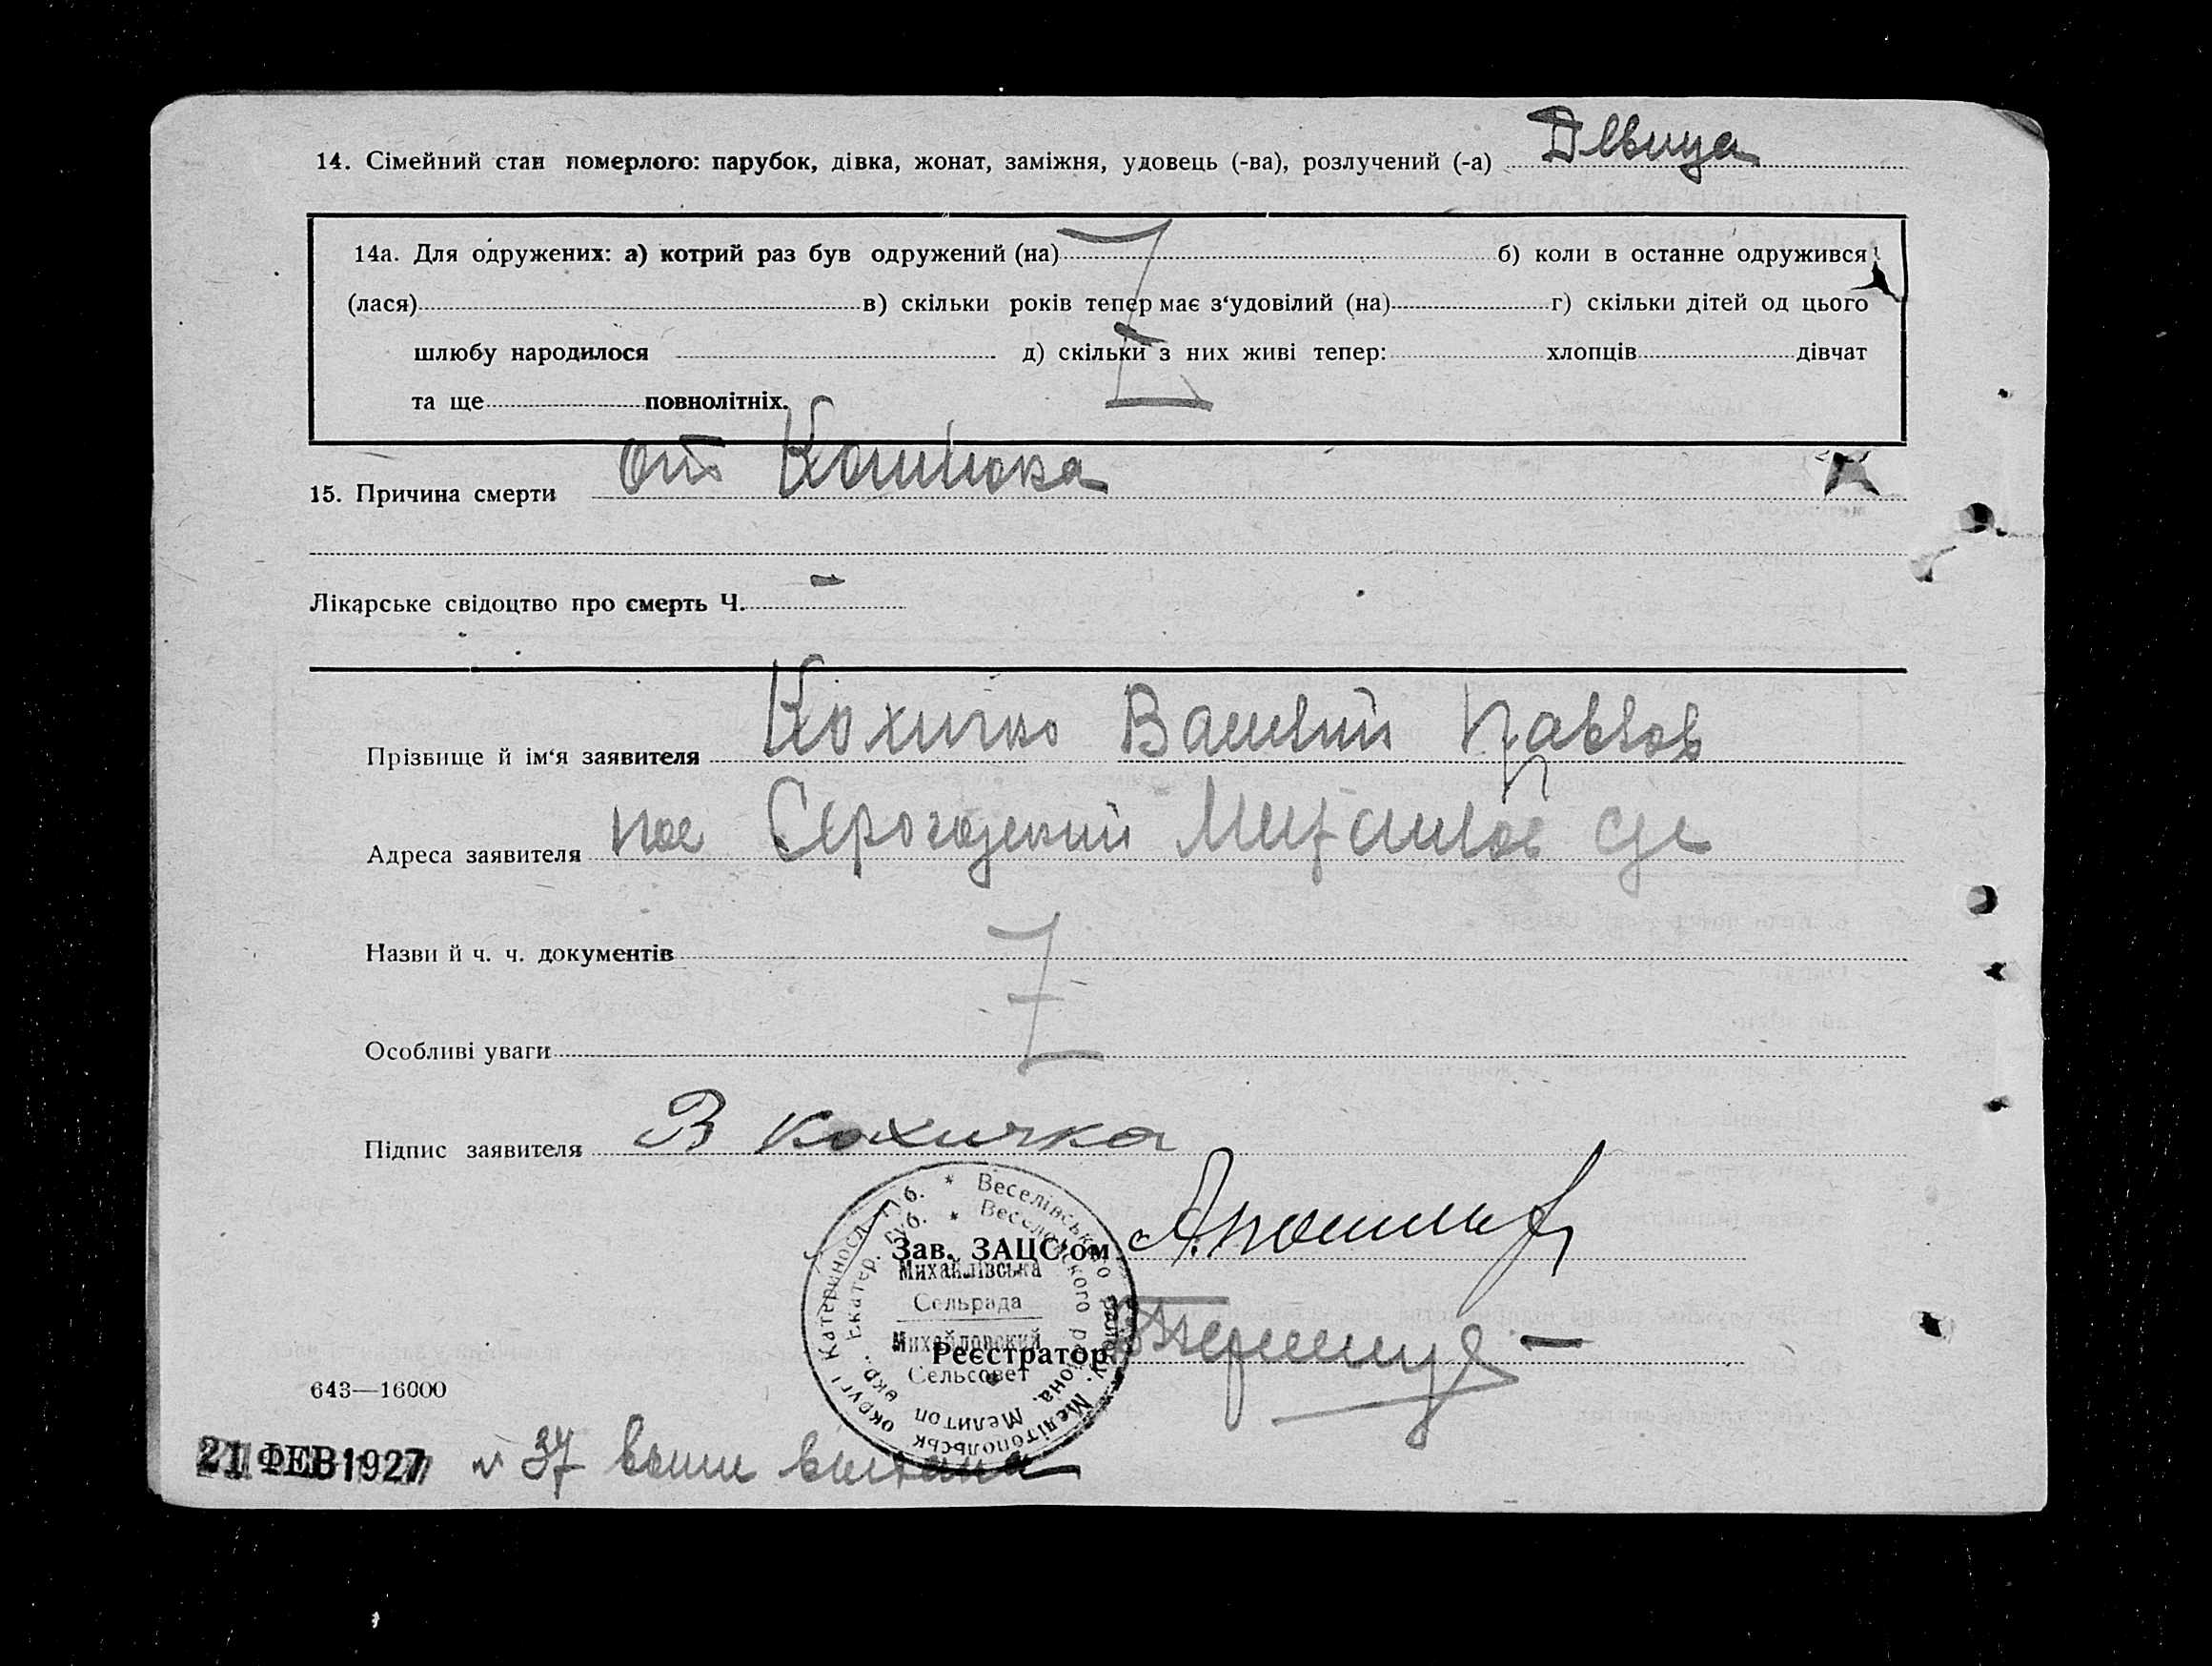 14. Сімейний стан померлого: парубок, дівка, жонат, заміжня, удовець (-ва), розлучений (-а) Девица
14а. Для одружених: а) котрий раз був одружений (на) б) коли в останне одружився
(лася) в) скільки років тепер має з‘удовілий (на) г) скільки дітей од цього
шлюбу народилося д) скільки з них живі тепер: хлопців дівчат
та ще повнолітніх.
15. Причина смерти от Коклюка
Лікарське свідоцтво про смерть Ч. –
Прізвище й ім‘я заявителя Кохичко Василий Павлов
Адреса заявителя пос Серогозский Михайлов с/с
Назви й ч. ч. документів
Особливі уваги
Підпис заявителя В Кохичка
Зав. ЗАЦС‘ом
Реєстратор
Катериносл. губ. * Веселівського району. Мелітопольськ округі
Екатер. губ. * Веселовского района. Мелитоп окр.
Михайлівська
Сельрада
Михайловский
Сельсовет
643—16000
21 ФЕВ 1927 № 37